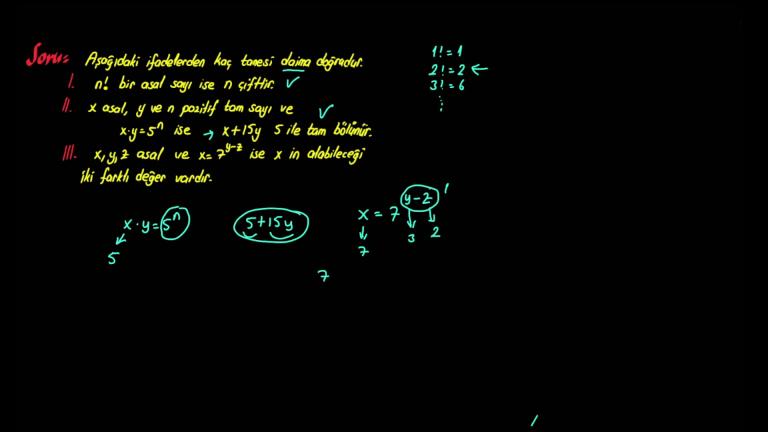 Soru: Aşağıdaki ifadelerden kaç tanesi daima doğrudur.
I. n! bir asal sayı ise n çifttir. ✓
II. x asal, y ve n pozitif tam sayı ve ✓
x·y=5ⁿ ise → x+15y 5 ile tam bölünür.
III. x,y,z asal ve x=7^(y-z) ise x in alabileceği
iki farklı değer vardır.
1!=1
2!=2 ←
3!=6
⋮
x·y=5ⁿ
5
5+15y
x=7^(y-z) 1
7 3 2
7